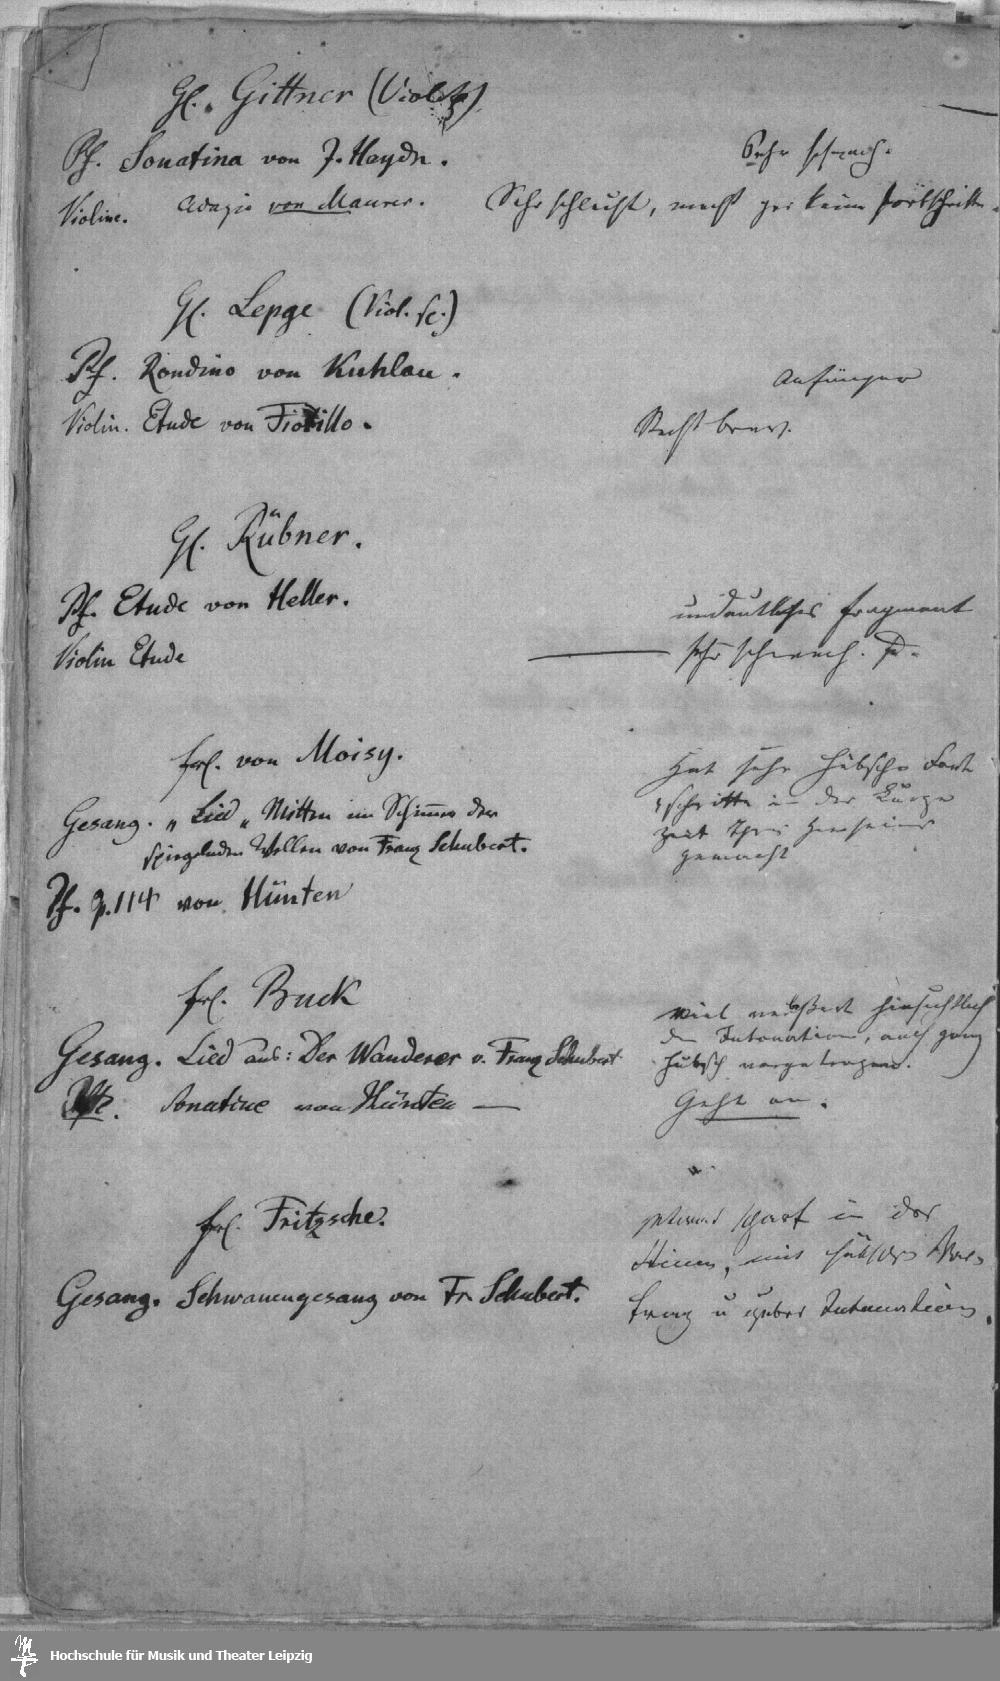 H. Gittner (Violin)
Pf. Sonatina von J. Haydn. Sehr schwach.
Violine. Adagio von Maurer. Sehr schlecht, macht gar keine Fortschritte.
H. Lepge (Viol. sc.)
Pf. Rondino von Kuhlau. Anfänger
Violin. Etude von Fiorillo. Recht brav.
H. Rübner.
Pf. Etude von Heller. undeutliches Fragment
Violin Etude — sehr schwach. D.
Frl. von Moisy.
Gesang. „Lied„ Mitten im Schimmer der
spiegelnden Wellen von Franz Schubert.
Hat sehr hübsche Fort
schritte in der kurzen
Zeit Ihres Hierseins
gemacht
Pf. p. 114 von Hünten
Frl. Buck
Gesang. Lied aus: Der Wanderer v. Franz Schubert
viel verbessert hinsichtlich
der Intonation, auch ganz
hübsch vorgetragen.
Pf. Sonatine von Hünten — Geht an.
Frl. Fritzsche.
Gesang. Schwanengesang von Fr. Schubert.
Etwas scharf in der
Stimme, mit hübschem Vor-
trag u guter Intonation.
Hochschule für Musik und Theater Leipzig